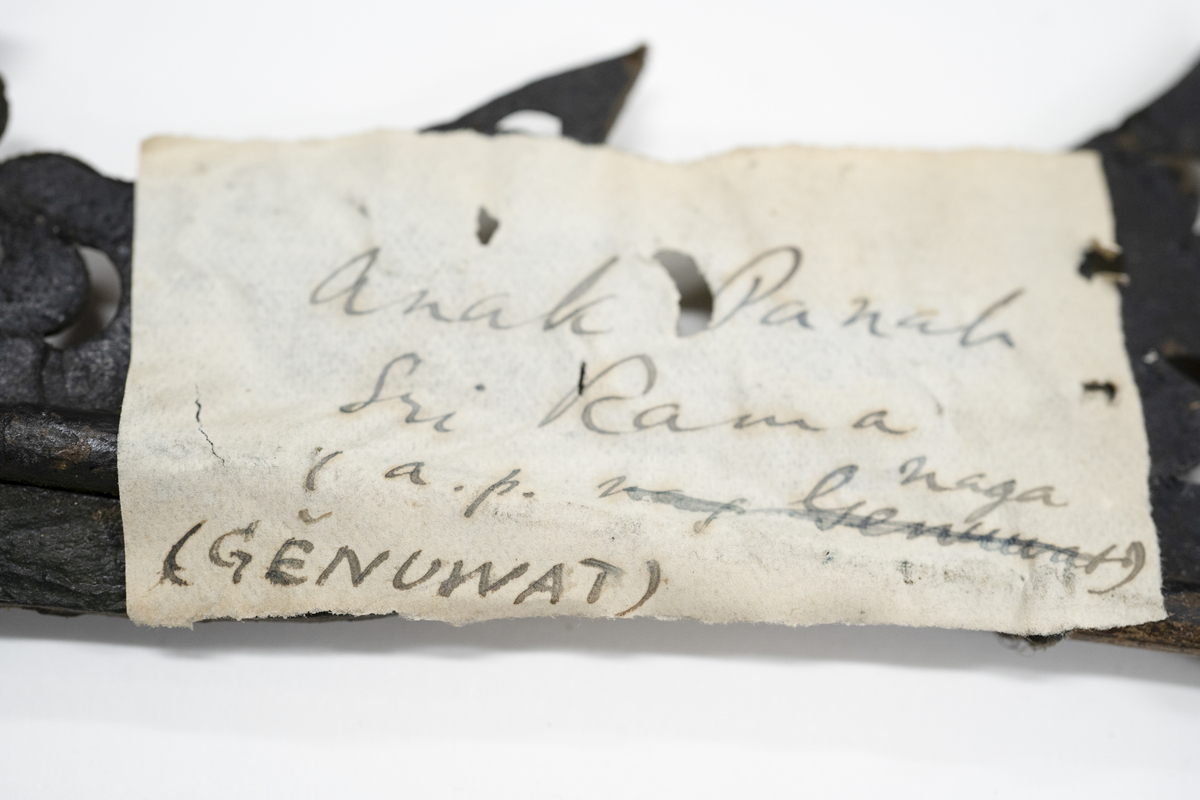 Anak Panah
Sri Rama
naga
( a.p. nag Genuwat)
(GĔNUWAT)